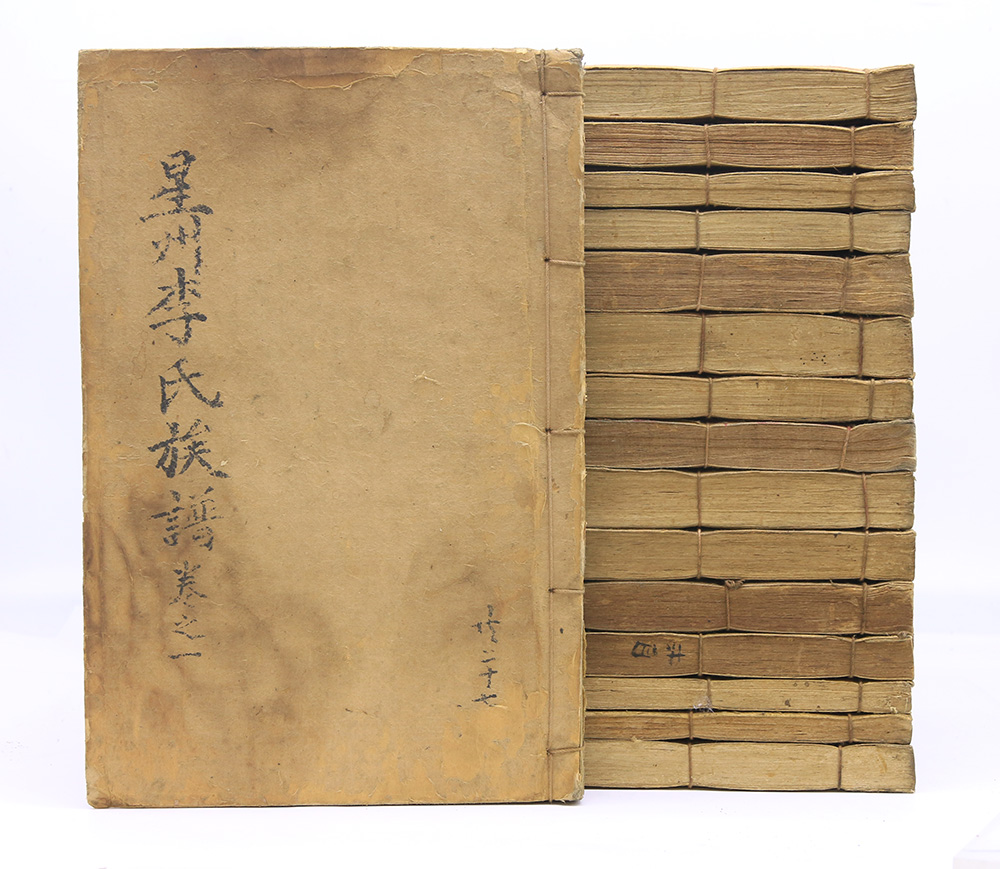 星州李氏族譜 卷之一
共二十七